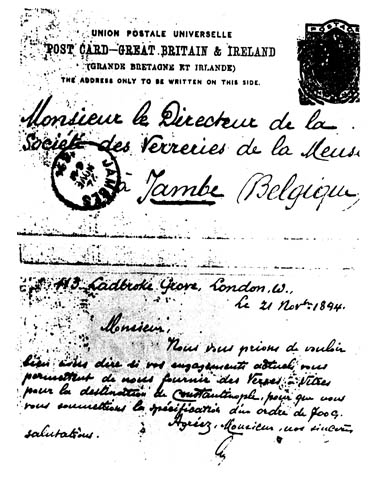 UNION POSTALE UNIVERSELLE
POST CARD—GREAT BRITAIN & IRELAND
(GRANDE BRETAGNE ET IRLANDE)
THE ADDRESS ONLY TO BE WRITTEN ON THIS SIDE.
Monsieur le Directeur de la
Société des Verreries de la Meuse
à Jambe (Belgique)
JAMBES
113 Ladbroke Grove, London, W.,
le 21 Novbr 1894.
Monsieur,
Nous vous prions de vouloir
bien nous dire si vos engagements actuels vous
permettent de nous fournir des Verres à Vitres
pour la destination de Constantinople, pour que nous
vous soumettions la spécification d'un ordre de
Agréez, Monsieur, nos sincères
salutations.